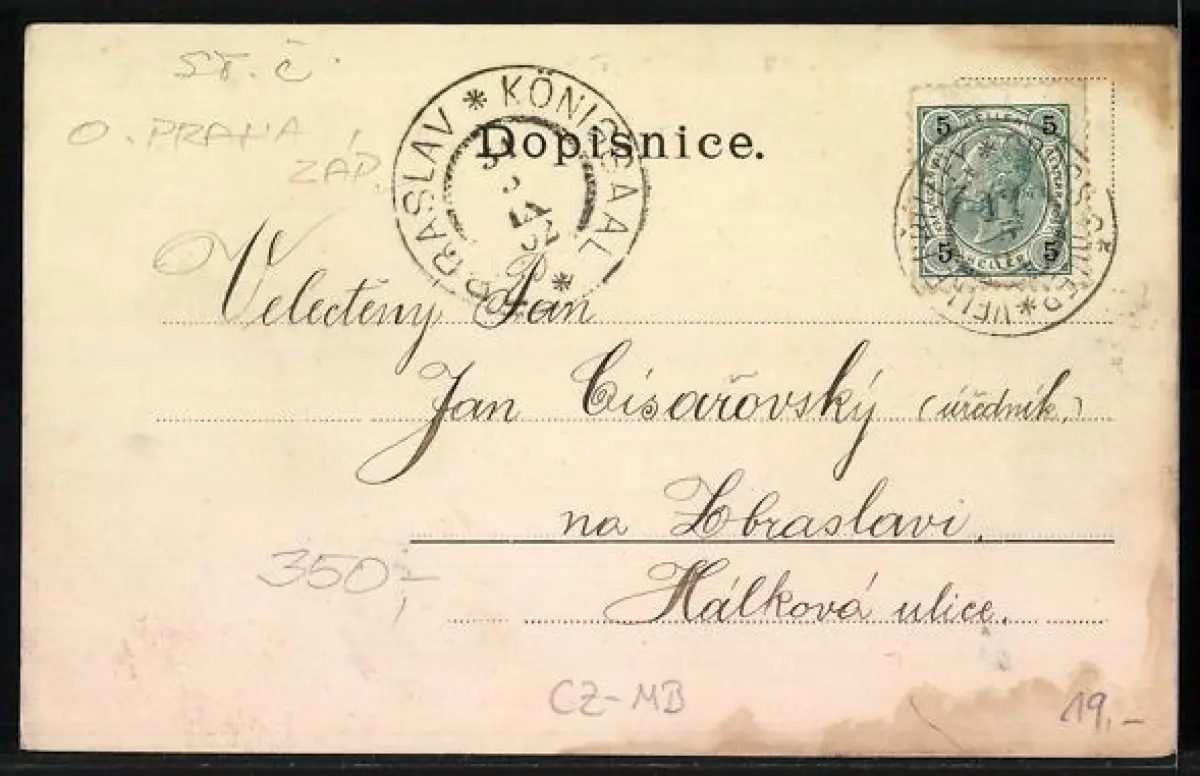 ST. Č.
O. PRAHA
ZÁP.
KÖNIGSAAL * ZBRASLAV *
Dopisnice.
5 HELLER 5
5 HELLER 5
Velectěný Pan
Jan Císařovský (úředník.)
na Zbraslavi.
350,-
Hálková ulice.
CZ-MB
19,-